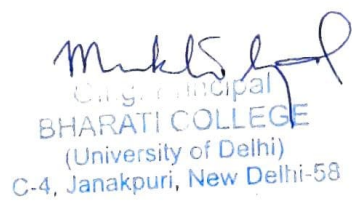 Principal
BHARATI COLLEGE
(University of Delhi)
C-4, Janakpuri, New Delhi-58